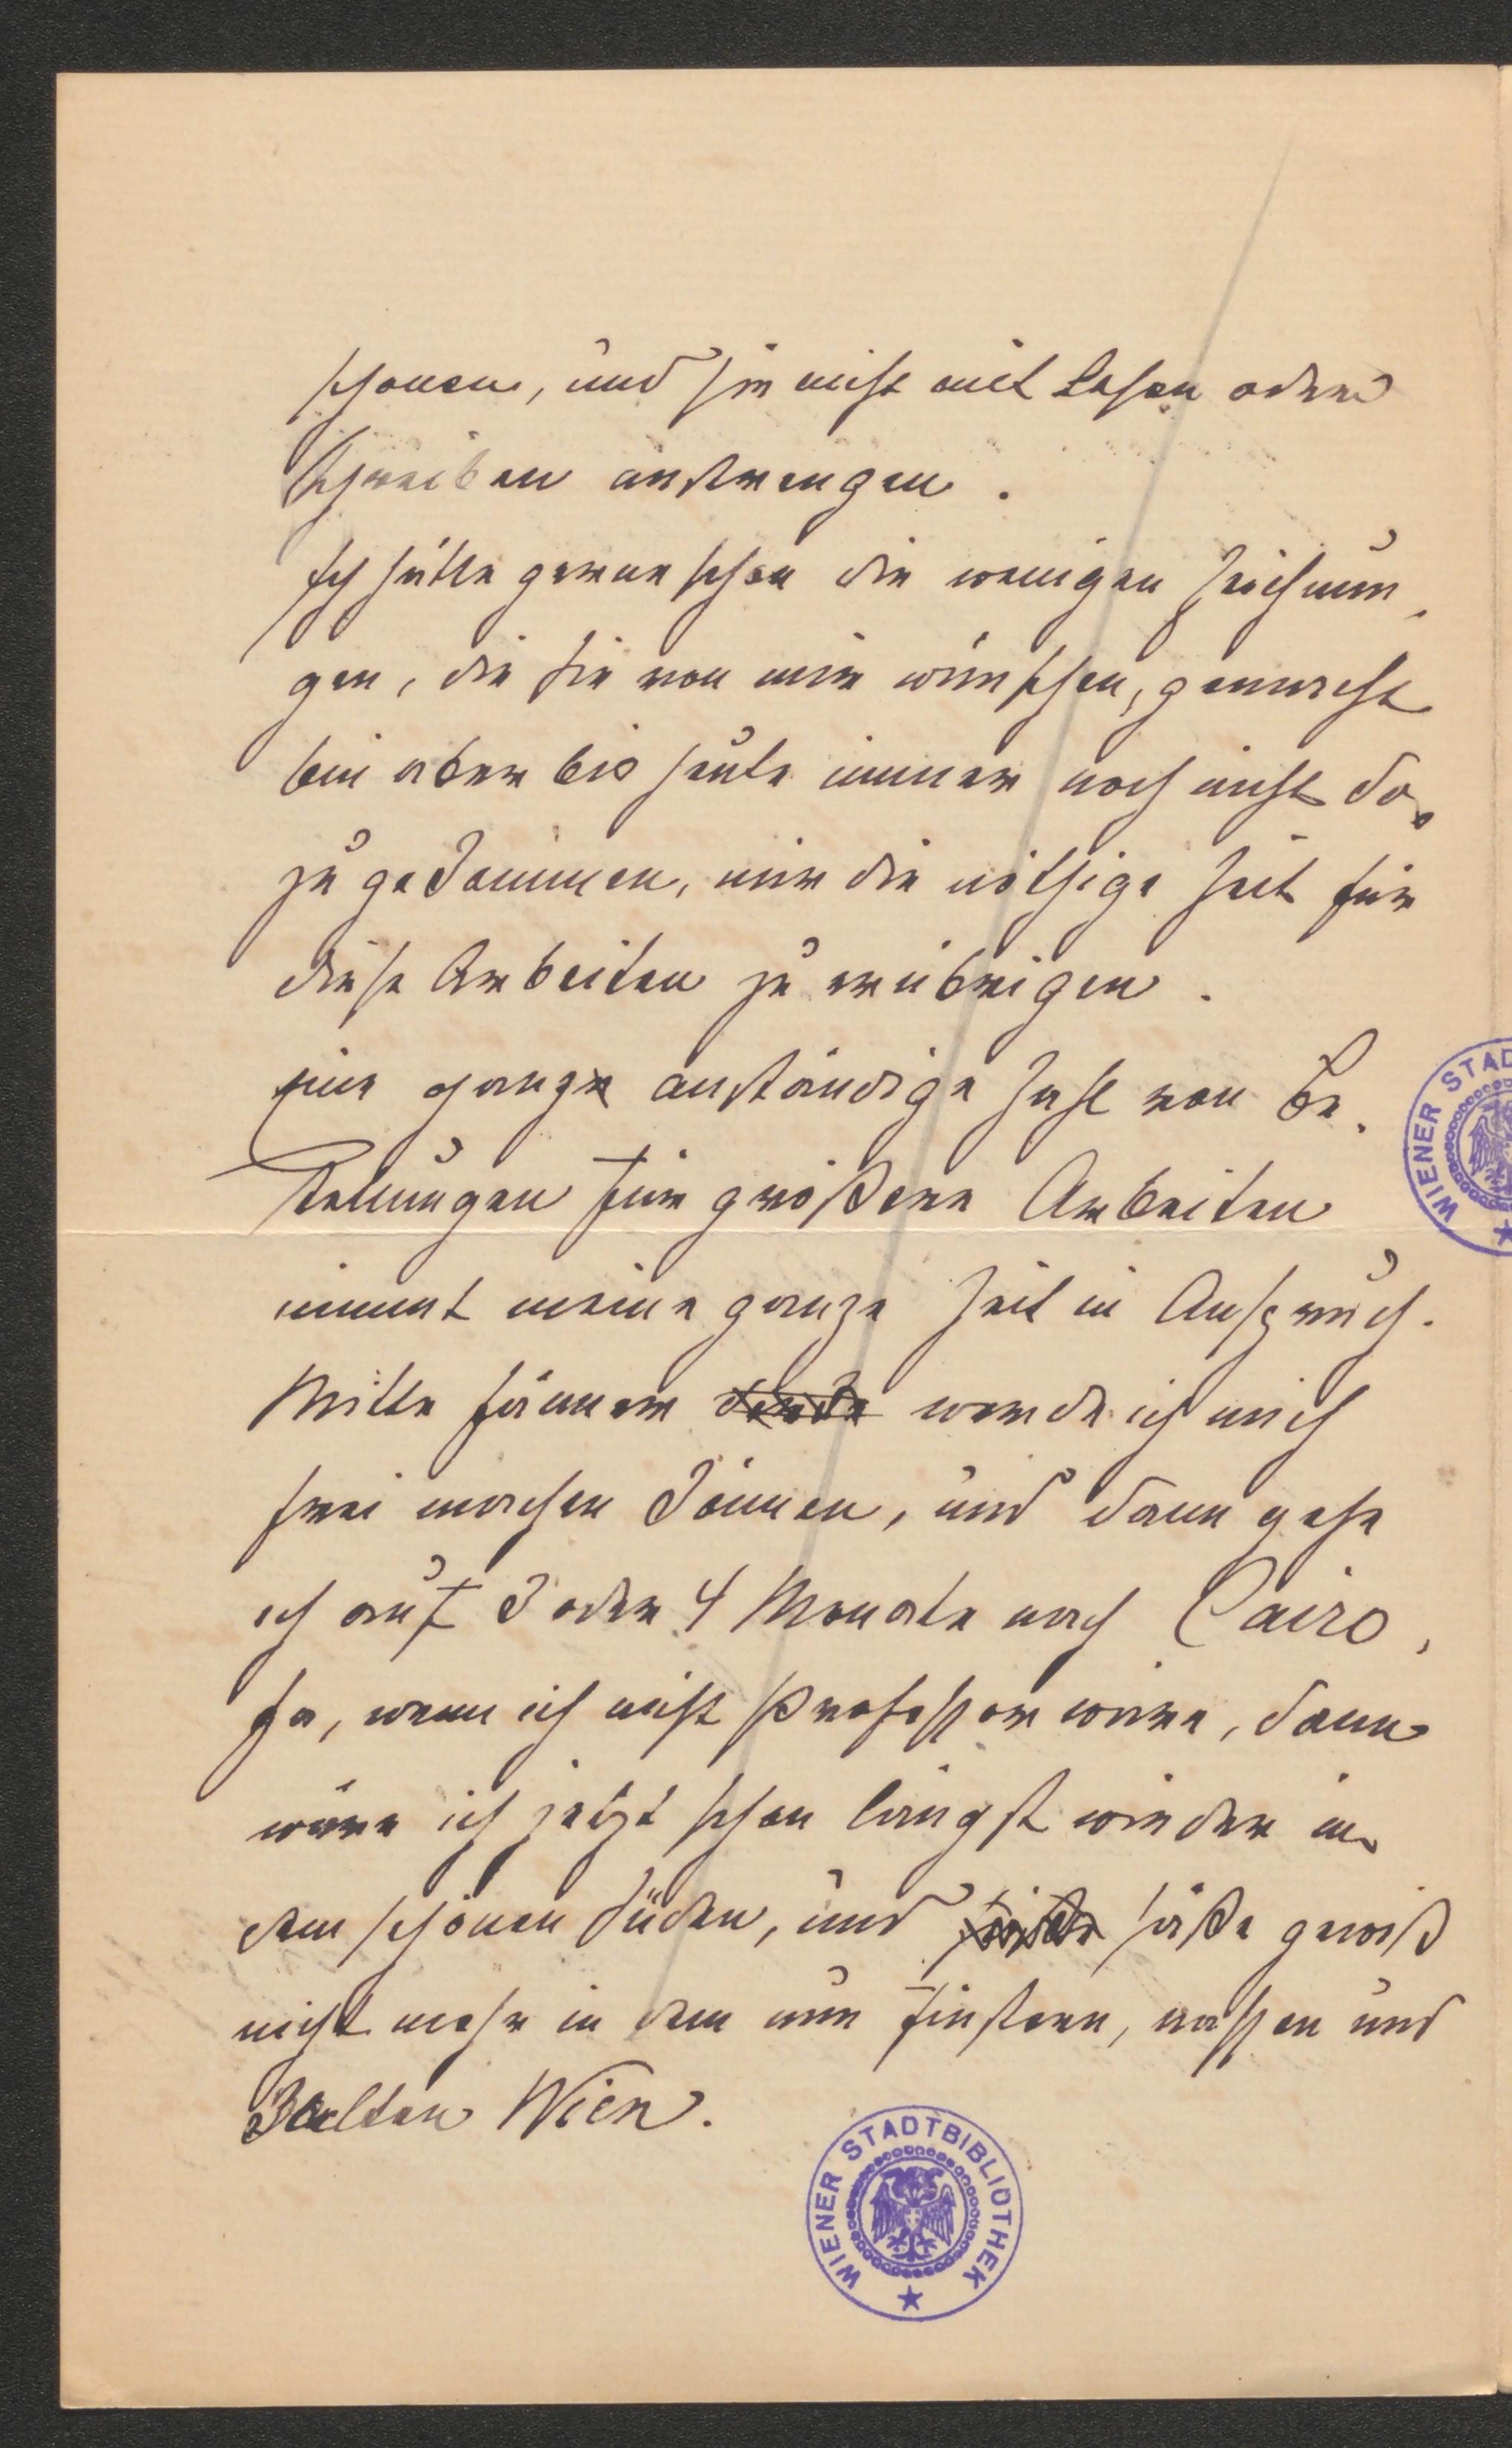 schonen, und sie nicht mit Lesen oder
Schreiben anstrengen.
Ich hätte gerne schon die wenigen Zeichnun-
gen, die Sie von mir wünschen, gemacht
bin aber bis heute immer noch nicht da-
zu gekommen, mir die nöthige Zeit für
diese Arbeiten zu erübrigen.
eine ganze anständige Zahl von Be-
stellungen für größere Arbeiten
nimmt meine ganze Zeit in Anspruch.
Mitte Jänner werde ich mich
frei machen können, und dann gehe
ich auf 3 oder 4 Monate nach Cairo,
Ja, wenn ich nicht Professor wäre, dann
wäre ich jetzt schon längst wieder in
dem schönen Süden, und säße gewiß
nicht mehr in dem nun finstern, nassen und
kalten Wien.
WIENER STADTBIBLIOTHEK
WIENER STAD